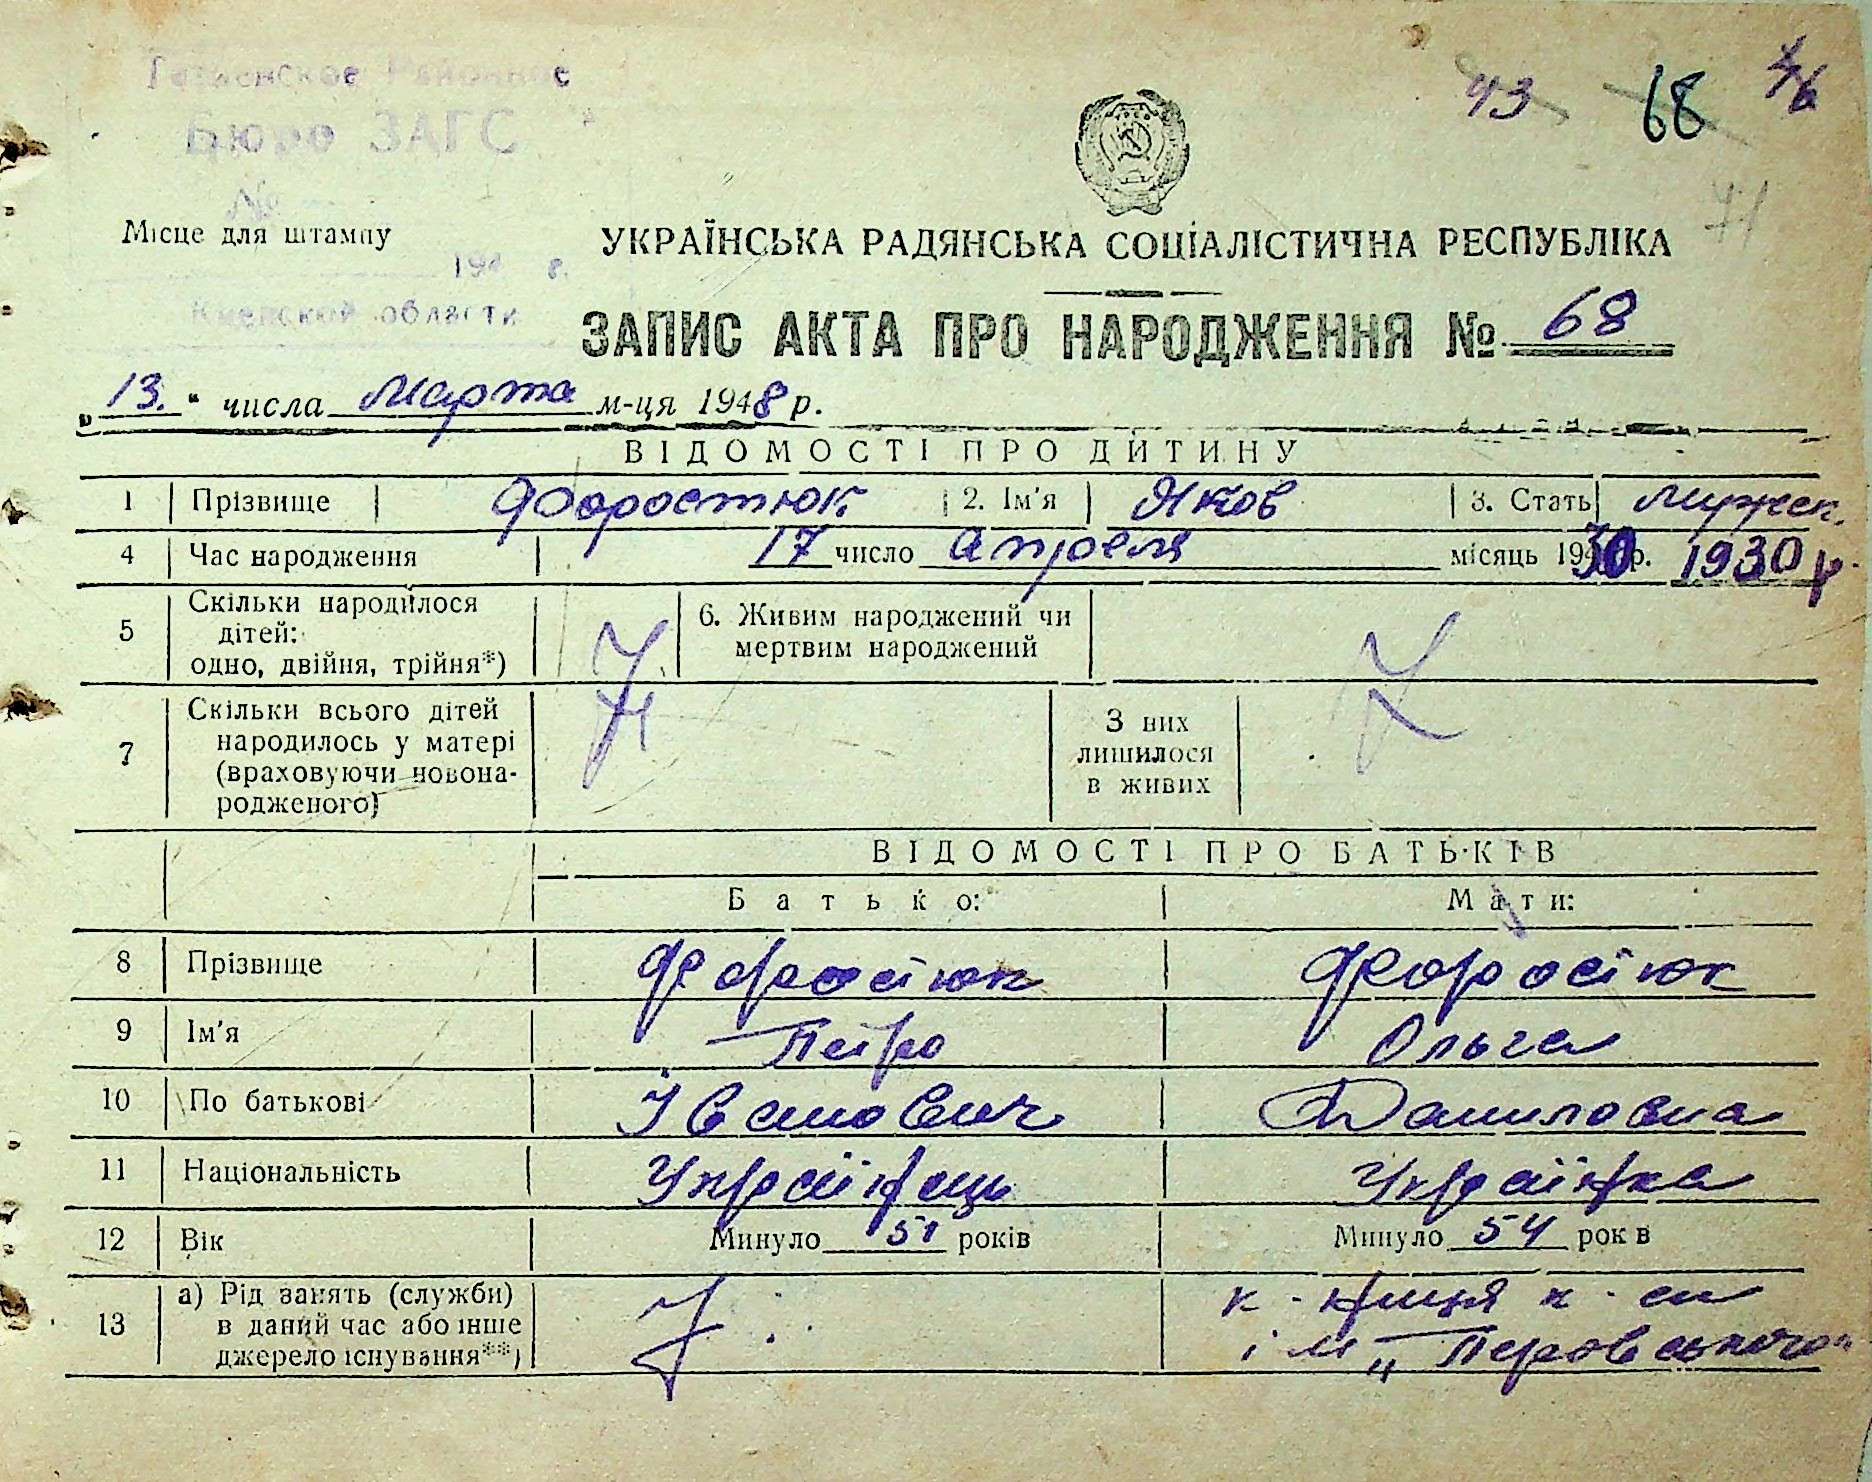 Районное
Бюро ЗАГС
№
43 68 46
71
Місце для штампу
194 в.
Киевской области
УКРАЇНСЬКА РАДЯНСЬКА СОЦІАЛІСТИЧНА РЕСПУБЛІКА
ЗАПИС АКТА ПРО НАРОДЖЕННЯ № 68
„13.“ числа Марта м-ця 1948 р.
ВІДОМОСТІ ПРО ДИТИНУ
1 Прізвище Форостюк 2. Ім'я Яков 3. Стать Мужск.
4 Час народження 17 число Апреля місяць 1930 р. 1930 р.
5 Скільки народилося дітей: одно, двійня, трійня*) 6. Живим народжений чи мертвим народжений
7 Скільки всього дітей народилось у матері (враховуючи новонародженого) З них лишилося в живих
ВІДОМОСТІ ПРО БАТЬКІВ
Батько: Мати:
8 Прізвище Форостюк Форостюк
9 Ім'я Петро Ольга
10 По батькові Іванович Даниловна
11 Національність Українець Українка
12 Вік Минуло 51 років Минуло 54 рок в
13 а) Рід занять (служби) в даний час або інше джерело існування**) к-ниця к-си
ім „Перовського"